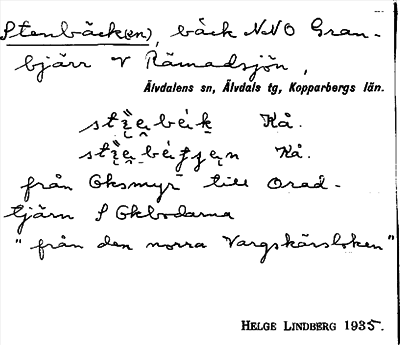 Stenbäck(en), bäck NNO Gran-
bjärr V Rämadsjön,
Älvdalens sn, Älvdals tg, Kopparbergs län.
Kå.
Kå.
från Oksmyr till Orad-
tjärn S Okbodarna
"från den norra Vargskärsloken"
HELGE LINDBERG 1935.